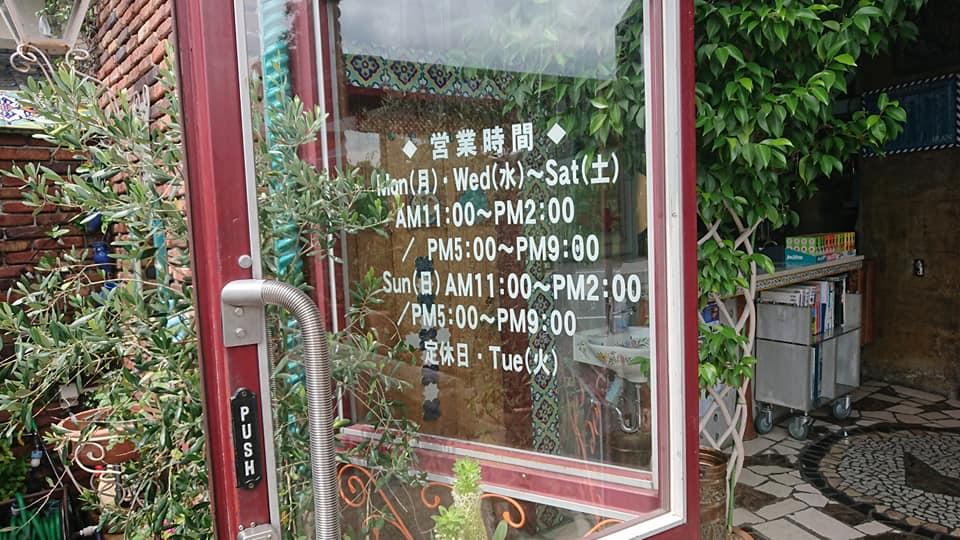 ◆ 営業時間 ◆
Mon(月)・Wed(水)～Sat(土)
AM11:00～PM2:00
/ PM5:00～PM9:00
Sun(日)AM11:00～PM2:00
/PM5:00～PM9:00
定休日・Tue(火)
PUSH